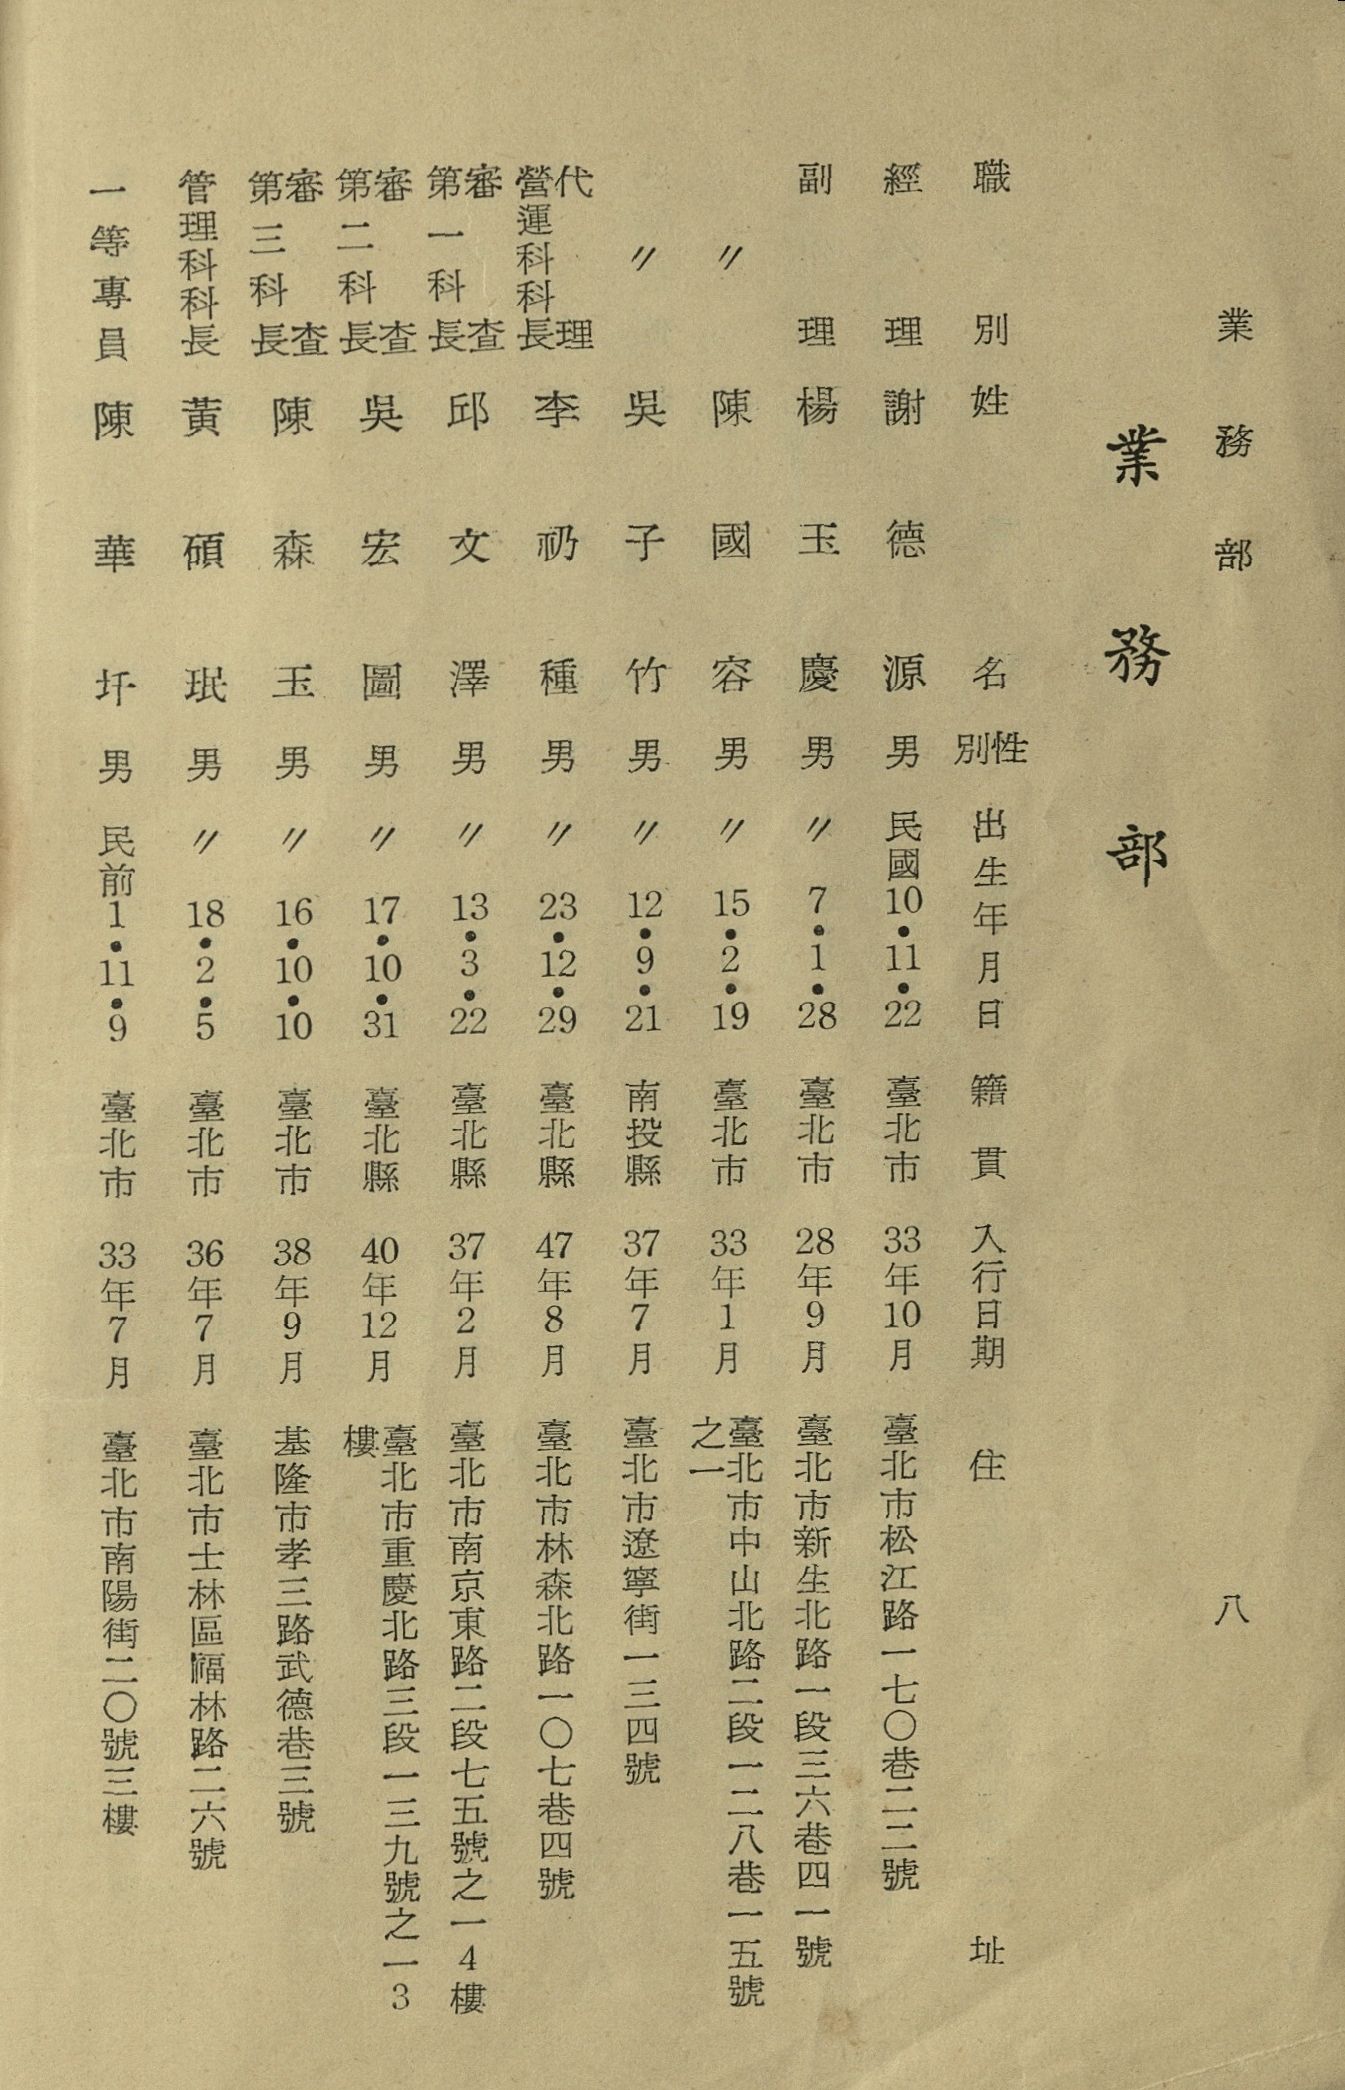 業務部
八
業務部
職別 姓名 性別 出生年月日 籍貫 入行日期 住址
經理 謝德源 男 民國10•11•22 臺北市 33年10月 臺北市松江路一七〇巷二二號
副理 楊玉慶 男 〃7•1•28 臺北市 28年9月 臺北市新生北路一段三六巷四一號
〃 陳國容 男 〃15•2•19 臺北市 33年1月 臺北市中山北路二段一二八巷一五號
之一
〃 吳子竹 男 〃12•9•21 南投縣 37年7月 臺北市遼寧街一三四號
代理
營運科科長 李礽種 男 〃23•12•29 臺北縣 47年8月 臺北市林森北路一〇七巷四號
審查
第一科長 邱文澤 男 〃13•3•22 臺北縣 37年2月 臺北市南京東路二段七五號之一4樓
審查
第二科長 吳宏圖 男 〃17•10•31 臺北縣 40年12月 臺北市重慶北路三段一三九號之一3
樓
審查
第三科長 陳森玉 男 〃16•10•10 臺北市 38年9月 基隆市孝三路武德巷三號
管理科科長 黃碩珉 男 〃18•2•5 臺北市 36年7月 臺北市士林區福林路二六號
一等專員 陳華圩 男 民前1•11•9 臺北市 33年7月 臺北市南陽街二〇號三樓